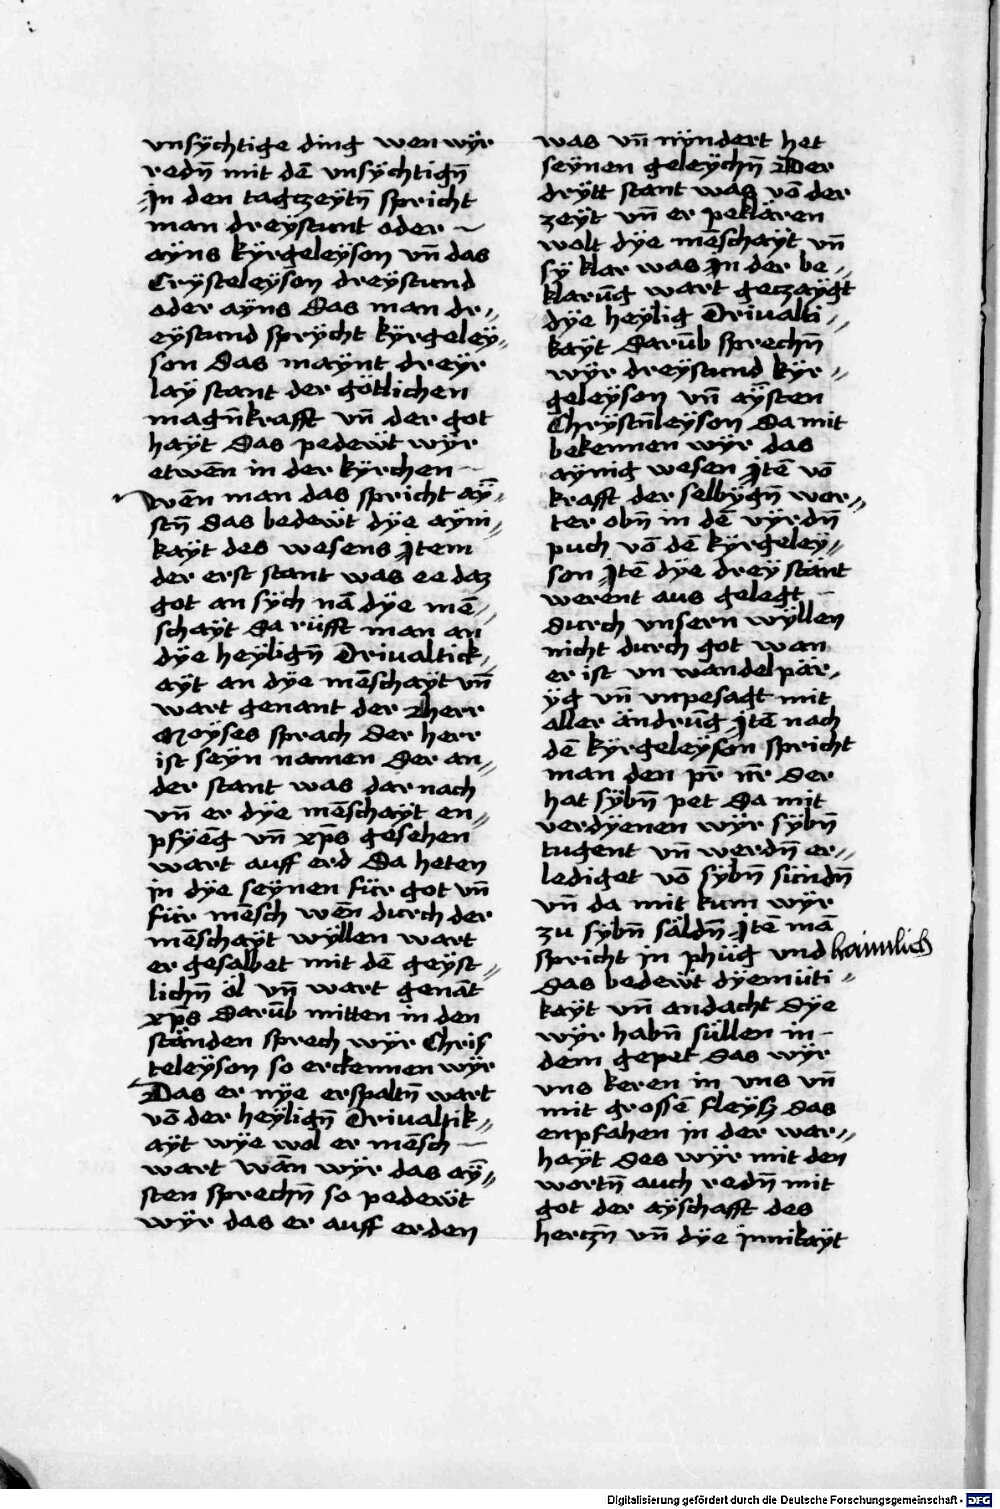 vnsÿchtige ding wen wÿr
redn̄ mit dē vnsÿchtign̄
Jn den tagczeÿtn̄ spricht
man dreÿstunt oder –
aÿns kÿrgeleÿson vn̄ das
Crÿsteleÿson dreÿstund
oder aÿns Das man dr„
eÿstund sprÿcht kÿrgeleÿ„
son Das maÿnt dreÿr
laÿ stant der götlichen
magn̄krafft vn̄ der got
haÿt Das pedewt wÿr
etwēn in der kÿrchen –
Wēn man das spricht aÿ„
stn̄ Das bedewt dÿe aÿni„
kaÿt des wesens Jtem
der erst stant was ee daz
got an sÿch nā dÿe mē„
schaÿt Da rüfft man an
dÿe heÿlign̄ Driualtick„
aÿt an dÿe mēschaÿt vn̄
wart genant der Herr
Moÿses sprach Der herr
ist seÿn namen Der an„
der stant was dar nach
vn̄ er dÿe mēschaÿt en„
pfÿēg vn̄ xp̄s gesehen
wart auff erd Da heten
in dÿe seÿnen für got vn̄
für mēsch wēn durch der
mēschaÿt wÿllen wart
er gesalbet mit dē geÿst„
lichn̄ öl vn̄ wart genāt
xp̄s Darūb mitten in den
ständen sprech wÿr Chris
teleÿson so erckennen wÿr
Das er nÿe erspaltn̄ wart
vō der heÿlign̄ Driualtik„
aÿt wÿe wol er mēsch –
wart wān wÿr das aÿ„
sten sprechn̄ so pedewt
wÿr das er auff erden
was vn̄ nÿndert het
seÿnen geleÿchn̄ Der
drÿtt stant was vō der
zeÿt vn̄ er peklären
wolt dÿe mēschaÿt vn̄
sÿ klar was Jn der be„
klarūg wart geczaÿgt
dÿe heÿlig Driualti„
kaÿt Darūb sprechn̄
wÿr dreÿstund kÿr„
geleÿson vn̄ aÿsten
Chrÿstn̄leÿson Da mit
bekennen wÿr das
aÿnig wesen Jtē vō
krafft der selbÿgn̄ wor„
ter obn̄ in dē vÿrdn̄
puch vō dē kÿrgeleÿ„
son Jtē dÿe dreÿ stänt
werent aus gelegt –
durch vnsern wÿllen
nicht durch got wan
er ist vn wandelpär„
ÿg vn̄ vnpesagt mit
aller ändrūg Jtē nach
dē kÿrgeleÿson spricht
man den pr̄ nr̄ Der
hat sÿbn̄ pet Da mit
verdÿenen wÿr sÿbn̄
tugent vn̄ werdn̄ er„
lediget vō sÿbn̄ sündn̄
vn̄ da mit kum wÿr
zu sÿbn̄ säldn̄ Jtē mā
spricht in phüg vnd haimlich
Das bedewt dÿemüti„
kaÿt vn̄ andacht Dÿe
wÿr habn̄ süllen in –
dem gepet Das wÿr
vns keren in vns vn̄
mit grossē fleÿsz das
enpfahen in der war„
haÿt Des wÿr mit den
wortn̄ auch redn̄ mit
got der aÿschafft des
herczn̄ vn̄ dÿe innikaÿt
Digitalisierung gefördert durch die Deutsche Forschungsgemeinschaft - DFG